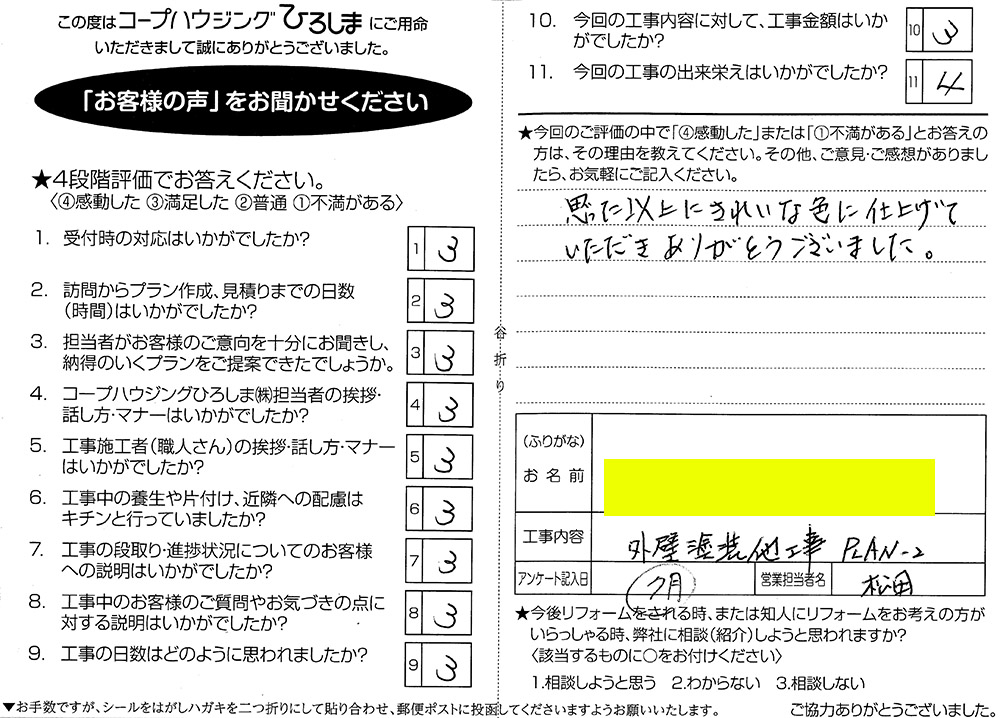 この度はコープハウジングひろしまにご用命
いただきまして誠にありがとうございました。
「お客様の声」をお聞かせください
★4段階評価でお答えください。
〈④感動した ③満足した ②普通 ①不満がある〉
1. 受付時の対応はいかがでしたか?
1 3
2. 訪問からプラン作成、見積りまでの日数
(時間)はいかがでしたか?
2 3
3. 担当者がお客様のご意向を十分にお聞きし、
納得のいくプランをご提案できたでしょうか。
3 3
4. コープハウジングひろしま㈱担当者の挨拶・
話し方・マナーはいかがでしたか?
4 3
5. 工事施工者(職人さん)の挨拶・話し方・マナー
はいかがでしたか?
5 3
6. 工事中の養生や片付け、近隣への配慮は
キチンと行っていましたか?
6 3
7. 工事の段取り・進捗状況についてのお客様
への説明はいかがでしたか?
7 3
8. 工事中のお客様のご質問やお気づきの点に
対する説明はいかがでしたか?
8 3
9. 工事の日数はどのように思われましたか?
9 3
▼お手数ですが、シールをはがしハガキを二つ折りにして貼り合わせ、郵便ポストに投函してくださいますようお願いいたします。
谷折り
10. 今回の工事内容に対して、工事金額はいか
がでしたか?
10 3
11. 今回の工事の出来栄えはいかがでしたか?
11 4
★今回のご評価の中で「④感動した」または「①不満がある」とお答えの
方は、その理由を教えてください。その他、ご意見・ご感想がありまし
たら、お気軽にご記入ください。
思った以上にきれいな色に仕上げて
いただきありがとうございました。
(ふりがな)
お名前
工事内容 外壁塗装他工事 PLAN-2
アンケート記入日 7月 営業担当者名 松田
★今後リフォームをされる時、または知人にリフォームをお考えの方が
いらっしゃる時、弊社に相談(紹介)しようと思われますか?
〈該当するものに○をお付けください〉
1.相談しようと思う 2.わからない 3.相談しない
ご協力ありがとうございました。